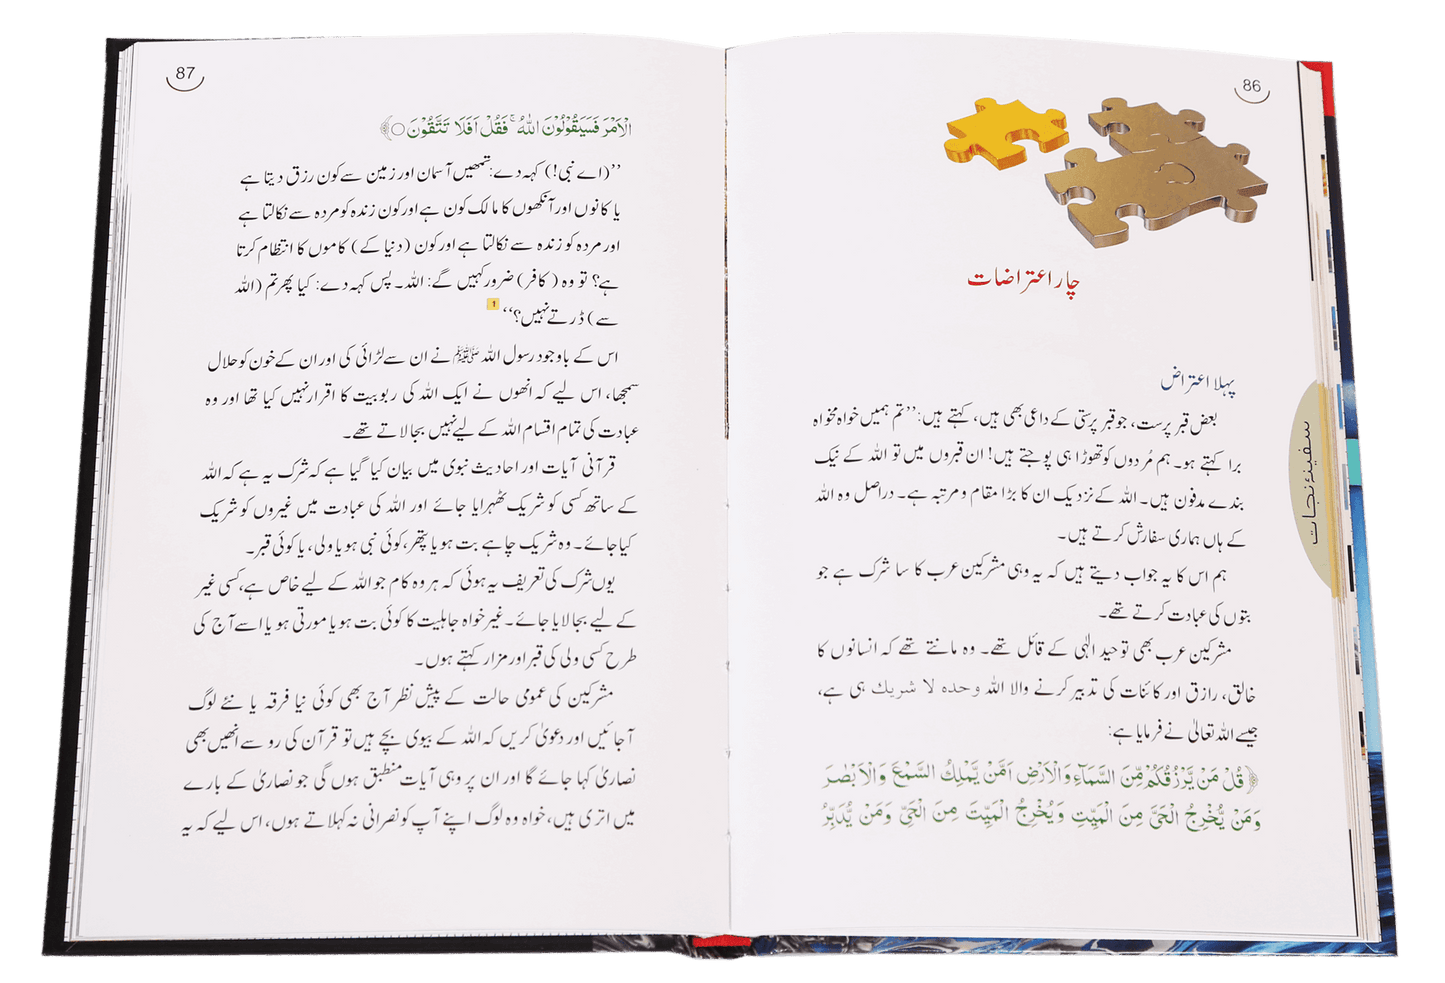 86
چار اعتراضات
سفینۂ نجات
پہلا اعتراض
بعض قبر پرست، جو قبر پرستی کے داعی بھی ہیں، کہتے ہیں: ’’تم ہمیں خواہ مخواہ
برا کہتے ہو۔ ہم مُردوں کو تھوڑا ہی پوجتے ہیں! ان قبروں میں تو اللہ کے نیک
بندے مدفون ہیں۔ اللہ کے نزدیک ان کا بڑا مقام و مرتبہ ہے۔ دراصل وہ اللہ
کے ہاں ہماری سفارش کرتے ہیں۔
ہم اس کا یہ جواب دیتے ہیں کہ یہ وہی مشرکین عرب کا سا شرک ہے جو
بتوں کی عبادت کرتے تھے۔
مشرکین عرب بھی توحید الٰہی کے قائل تھے۔ وہ مانتے تھے کہ انسانوں کا
خالق، رازق اور کائنات کی تدبیر کرنے والا اللہ وحدہ لا شریك ہی ہے،
جیسے اللہ تعالیٰ نے فرمایا ہے:
﴿قُلْ مَنْ يَّرْزُقُكُمْ مِّنَ السَّمَآءِ وَالْاَرْضِ اَمَّنْ يَّمْلِكُ السَّمْعَ وَالْاَبْصٰرَ
وَمَنْ يُّخْرِجُ الْحَيَّ مِنَ الْمَيِّتِ وَيُخْرِجُ الْمَيِّتَ مِنَ الْحَيِّ وَمَنْ يُّدَبِّرُ
87
الْاَمْرَ فَسَيَقُوْلُوْنَ اللّٰهُ ۚ فَقُلْ اَفَلَا تَتَّقُوْنَ ○﴾
’’(اے نبی!) کہہ دے: تمھیں آسمان اور زمین سے کون رزق دیتا ہے
یا کانوں اور آنکھوں کا مالک کون ہے اور کون زندہ کو مردہ سے نکالتا ہے
اور مردہ کو زندہ سے نکالتا ہے اور کون (دنیا کے) کاموں کا انتظام کرتا
ہے؟ تو وہ (کافر) ضرور کہیں گے: اللہ۔ پس کہہ دے: کیا پھر تم (اللہ
سے) ڈرتے نہیں؟‘‘ 1
اس کے باوجود رسول اللہ ﷺ نے ان سے لڑائی کی اور ان کے خون کو حلال
سمجھا، اس لیے کہ انھوں نے ایک اللہ کی ربوبیت کا اقرار نہیں کیا تھا اور وہ
عبادت کی تمام اقسام اللہ کے لیے نہیں بجا لاتے تھے۔
قرآنی آیات اور احادیث نبوی میں بیان کیا گیا ہے کہ شرک یہ ہے کہ اللہ
کے ساتھ کسی کو شریک ٹھہرایا جائے اور اللہ کی عبادت میں غیروں کو شریک
کیا جائے۔ وہ شریک چاہے بت ہو یا پتھر، کوئی نبی ہو یا ولی، یا کوئی قبر۔
یوں شرک کی تعریف یہ ہوئی کہ ہر وہ کام جو اللہ کے لیے خاص ہے، کسی غیر
کے لیے بجا لایا جائے۔ غیر خواہ جاہلیت کا کوئی بت ہو یا مورتی ہو یا اسے آج کی
طرح کسی ولی کی قبر اور مزار کہتے ہوں۔
مشرکین کی عمومی حالت کے پیش نظر آج بھی کوئی نیا فرقہ یا نئے لوگ
آ جائیں اور دعویٰ کریں کہ اللہ کے بیوی بچے ہیں تو قرآن کی رو سے انھیں بھی
نصاریٰ کہا جائے گا اور ان پر وہی آیات منطبق ہوں گی جو نصاریٰ کے بارے
میں اتری ہیں، خواہ وہ لوگ اپنے آپ کو نصرانی نہ کہلاتے ہوں، اس لیے کہ یہ